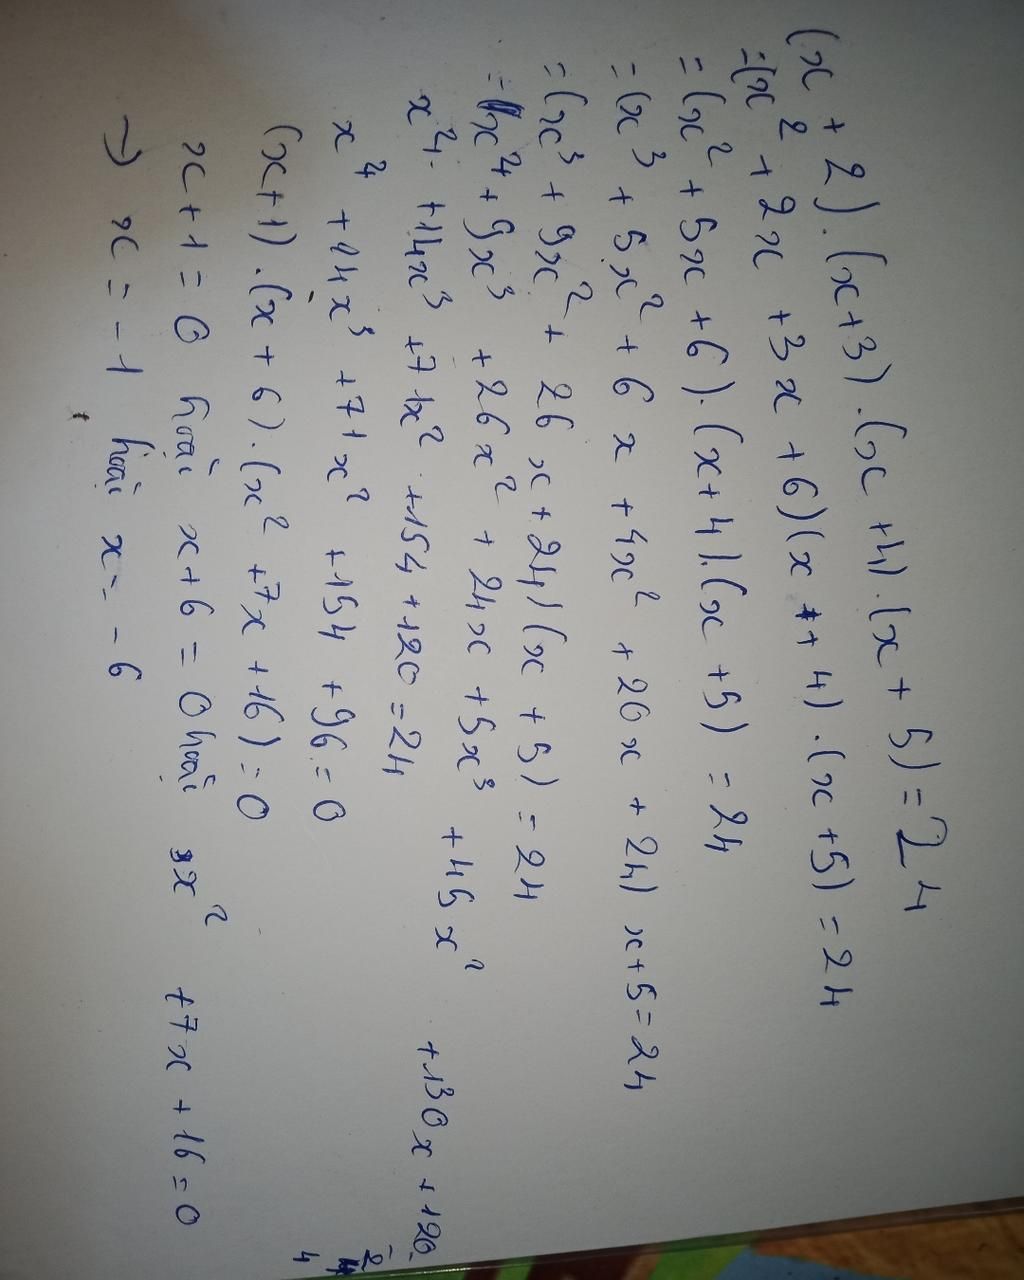 (x + 2).(x+3).(x +4).(x + 5) = 24
=(x² + 2x +3x +6)(x + 4).(x +5) = 24
= (x² + 5x +6).(x+4).(x +5) = 24
= (x³ + 5x² + 6x + 4x² + 20x + 24) x+5 = 24
= (x³ + 9x² + 26x + 24)(x + 5) = 24
= x⁴ + 9x³ + 26x² + 24x + 5x³ + 45x² + 130x + 120
x⁴ + 14x³ + 71x² + 154 + 120 = 24
x⁴ + 14x³ + 71x² + 154 + 96 = 0
(x+1).(x + 6).(x² +7x +16) = 0
x + 1 = 0 hoặc x+6 = 0 hoặc x² +7x + 16 = 0
→ x = -1 hoặc x = -6